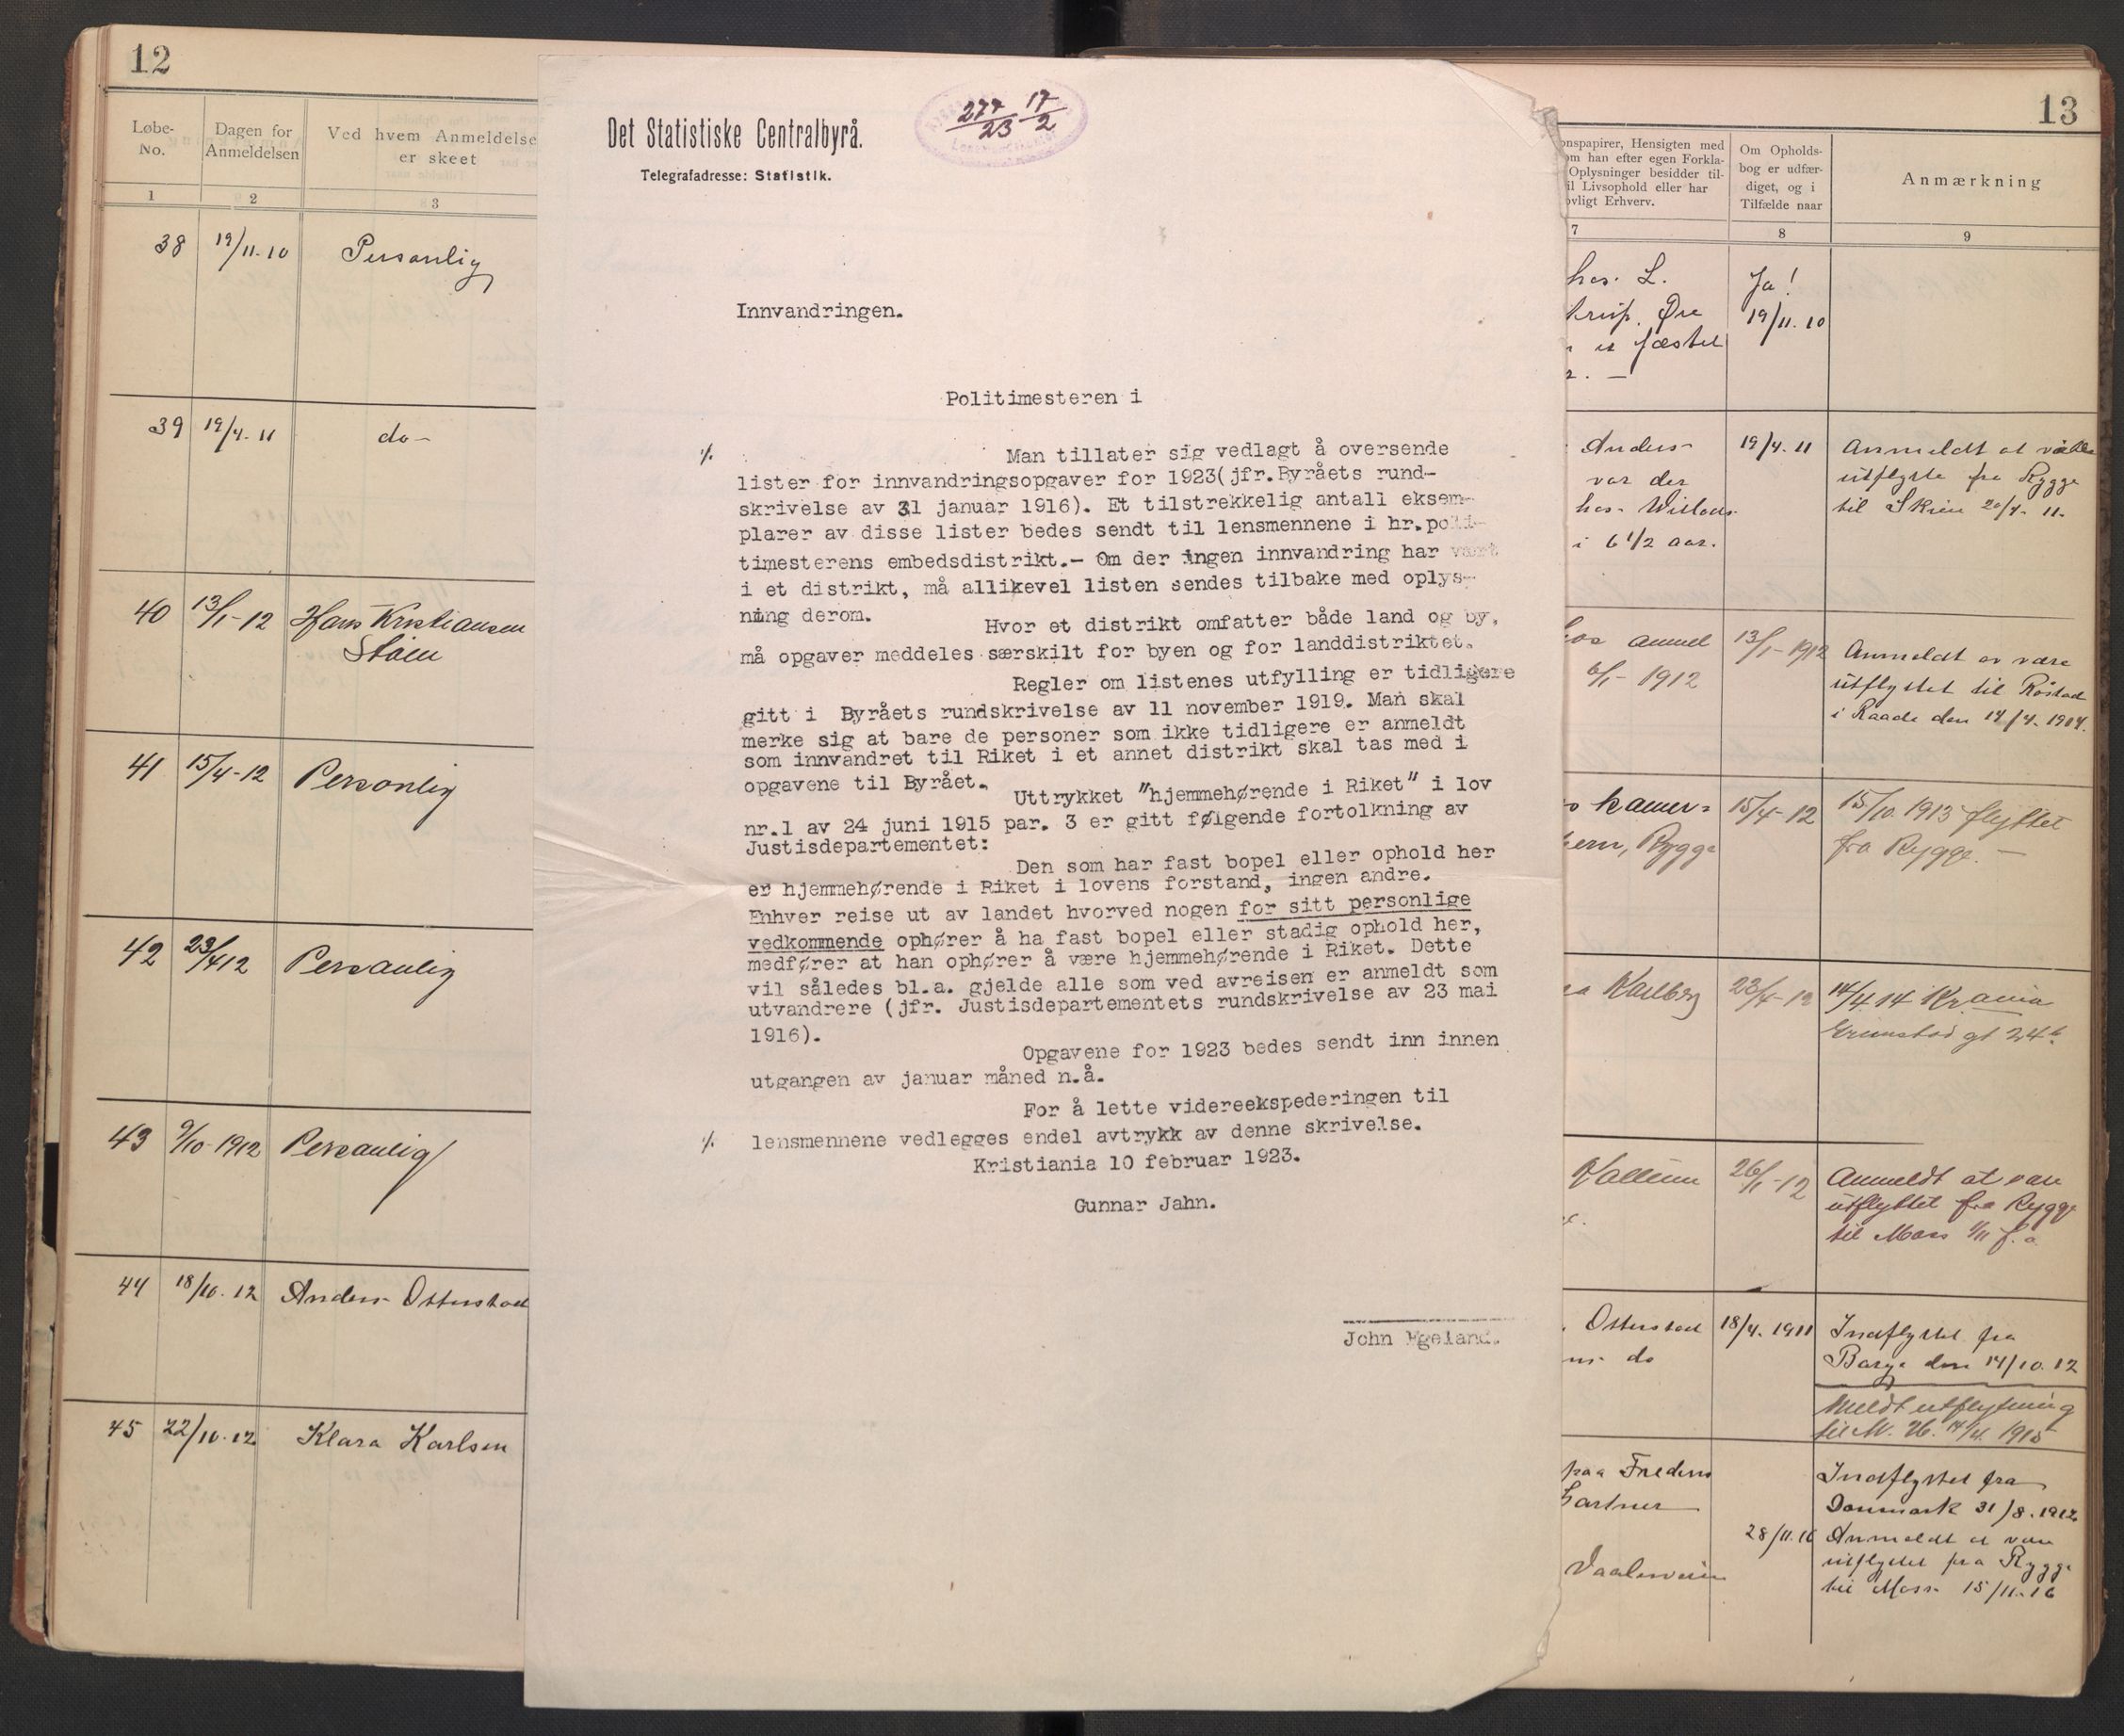 12
Løbe-
No.
Dagen for
Anmeldelsen
Ved hvem Anmeldelse
er skeet
1
2
3
38
19/11-10
Personlig
39
19/4. 11
do-
40
13/1-12
Hans Kristiansen
Støen
41
15/4-12
Personlig
42
23/412
Personlig
43
9/10-1912
Personlig
44
18/10. 12
Anders Otterstad
45
22/10.12
Klara Karlsen
277/23 17/2
Det Statistiske Centralbyrå.
Telegrafadresse: Statistik.
Innvandringen.
Politimesteren i
Man tillater sig vedlagt å oversende
lister for innvandringsopgaver for 1923(jfr.Byråets rund-
skrivelse av 31 januar 1916). Et tilstrekkelig antall eksem-
plarer av disse lister bedes sendt til lensmennene i hr.poli-
timesterens embedsdistrikt.- Om der ingen innvandring har vært
i et distrikt, må allikevel listen sendes tilbake med oplys-
ning derom.
Hvor et distrikt omfatter både land og by,
må opgaver meddeles særskilt for byen og for landdistriktet.
Regler om listenes utfylling er tidligere
gitt i Byråets rundskrivelse av 11 november 1919. Man skal
merke sig at bare de personer som ikke tidligere er anmeldt
som innvandret til Riket i et annet distrikt skal tas med i
opgavene til Byrået.
Uttrykket "hjemmehørende i Riket" i lov
nr.1 av 24 juni 1915 par. 3 er gitt følgende fortolkning av
Justisdepartementet:
Den som har fast bopel eller ophold her
er hjemmehørende i Riket i lovens forstand, ingen andre.
Enhver reise ut av landet hvorved nogen for sitt personlige
vedkommende ophører å ha fast bopel eller stadig ophold her,
medfører at han ophører å være hjemmehørende i Riket. Dette
vil således bl.a. gjelde alle som ved avreisen er anmeldt som
utvandrere (jfr. Justisdepartementets rundskrivelse av 23 mai
1916).
Opgavene for 1923 bedes sendt inn innen
utgangen av januar måned n.å.
For å lette videreekspederingen til
lensmennene vedlegges endel avtrykk av denne skrivelse.
Kristiania 10 februar 1923.
Gunnar Jahn.
John Egeland.
13
onspapirer, Hensigten med
om han efter egen Forkla-
Oplysninger besidder til-
il Livsophold eller har
ovligt Erhverv.
Om Opholds-
bog er udfær-
diget, og i
Tilfælde naar
Anmærkning
7
8
9
hos L.
Øre
er fæstet
Ja!
19/11. 10
Anders
var der
hos
i 6 1/2 aar.
19/4. 11
Anmeldt at være
utflytte fra Rygge
til Skien 20/4. 11.
6/1- 1912
13/1-1912
Anmeldt at være
utflyttet til Rostad
i Raade den 14/4. 1914.
Rygge
15/4-12
15/10. 1913 flyttet
fra Rygge. —
Karlberg
23/4-12
14/4 14 Kr.ania
Grimstad gt 24b.
26/1-12
Anmeldt at være
utflyttet fra Rygge
til Moss 1/11 f. a.
Otterstad
do
18/4. 1911
Indflyttet fra
Barge den 14/10. 12
Meldt utflytning
til 1915
paa Fredens
Gartner
Vaalerveien
28/11.16
Indflyttet fra
Danmark 31/8. 1912
Anmeldt at være
utflyttet fra Rygge
til Moss 15/11-16